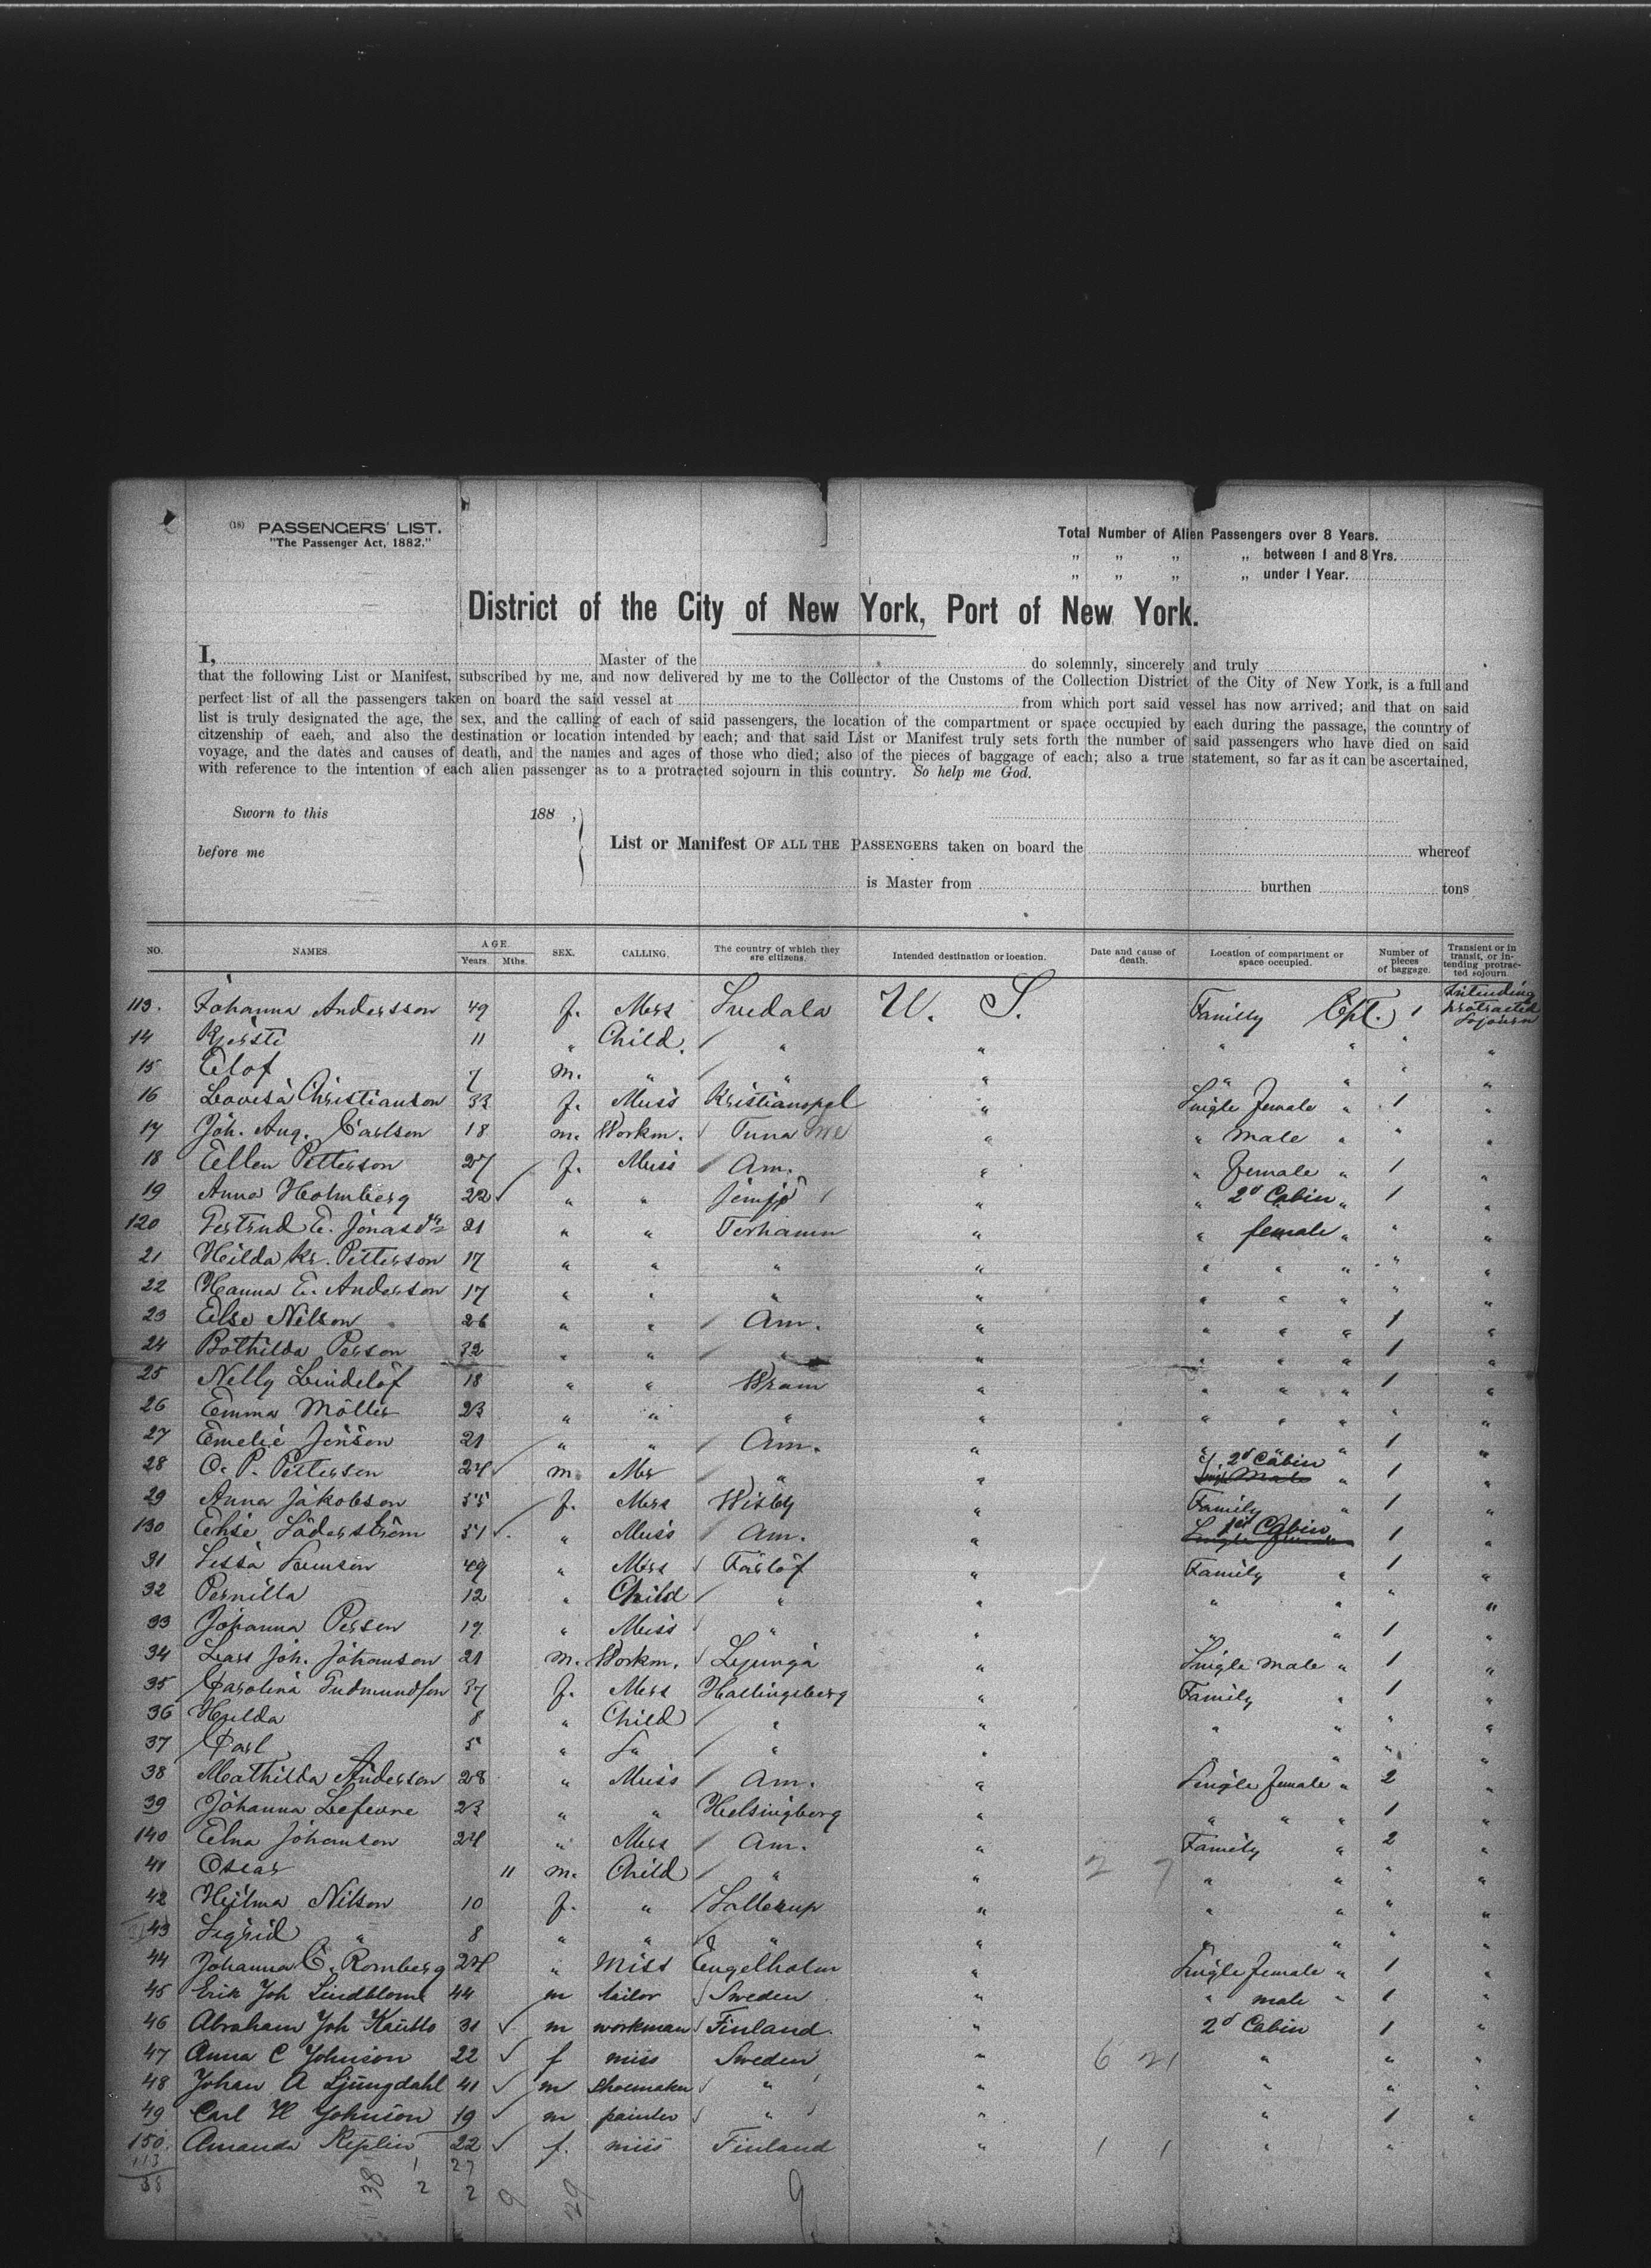 (18) PASSENGERS' LIST.
"The Passenger Act, 1882."
Total Number of Alien Passengers over 8 Years.
„ „ „ „ between 1 and 8 Yrs.
„ „ „ „ under 1 Year.
District of the City of New York, Port of New York.
I, Master of the do solemnly, sincerely and truly
that the following List or Manifest, subscribed by me, and now delivered by me to the Collector of the Customs of the Collection District of the City of New York, is a full and
perfect list of all the passengers taken on board the said vessel at from which port said vessel has now arrived; and that on said
list is truly designated the age, the sex, and the calling of each of said passengers, the location of the compartment or space occupied by each during the passage, the country of
citzenship of each, and also the destination or location intended by each; and that said List or Manifest truly sets forth the number of said passengers who have died on said
voyage, and the dates and causes of death, and the names and ages of those who died; also of the pieces of baggage of each; also a true statement, so far as it can be ascertained,
with reference to the intention of each alien passenger as to a protracted sojourn in this country. So help me God.
Sworn to this 188 ,
before me
List or Manifest OF ALL THE PASSENGERS taken on board the whereof
is Master from burthen tons
NO. NAMES. AGE. Years. Mths. SEX. CALLING. The country of which they are citizens. Intended destination or location. Date and cause of death. Location of compartment or space occupied. Number of pieces of baggage. Transient or in transit, or intending protracted sojourn.
113. Johanna Andersson 49 f. Mrs Svedala U. S. Family Cpt. 1 Intending protracted Sojourn
14 Kjersti 11 " Child " " " " " "
15 Elof 7 m. " " " " " " "
16 Lovisa Christianson 33 f. Miss Kristianopel " Single female " 1 "
17 Joh. Aug. Carlson 18 m. Workm. Tuna " " male " " "
18 Ellen Petterson 27 f. Miss Am. " " female " 1 "
19 Anna Holmberg 22 " " Jemjö " " 2d Cabin " 1 "
120 Gertrud E. Jonasdr 21 " " Torhamn " " female " " "
21 Hilda Kr. Petterson 17 " " " " " " " " "
22 Hanna E. Anderson 17 " " " " " " " " "
23 Else Nilson 26 " " Am. " " " " 1 "
24 Bothilda Person 32 " " " " " " " 1 "
25 Nelly Lindelöf 18 " " Wram " " " " 1 "
26 Emma Möller 23 " " " " " " " " "
27 Emelie Jönson 21 " " Am. " " " " 1 "
28 O. P. Petterson 24 m. Mr " " 2d Cabin " 1 "
29 Anna Jakobson 55 f. Mrs Wisby " Family " 1 "
130 Elise Söderström 51 " Miss Am. " 1st Cabin 1 "
31 Sissa 49 " Mrs Farlöf " Family " 1 "
32 Pernilla 12 " Child " " " " " "
33 Johanna Person 19 " Miss " " " " 1 "
34 Lars Joh. Johanson 21 m. Workm. Ljunga " Single male " 1 "
35 Carolina Gudmundson 37 f. Mrs Hallingsberg " Family " 1 "
36 Hulda 8 " Child " " " " " "
37 Carl 5 " " " " " " "
38 Mathilda Anderson 28 " Miss Am. " Single female " 2 "
39 Johanna Lefevre 23 " " Helsingborg " " " " 1 "
140 Elna Johanson 24 " Mrs Am. " Family " 2 "
41 Oscar 11 m. Child " " 2 7 " " " "
42 Hilma Nilson 10 f. " Sallerup " " " " "
43 Sigrid " 8 " " " " " " " "
44 Johanna C. Romberg 24 " Miss Engelholm " Single female " 1 "
45 Erik Joh Lindblom 44 m tailor Sweden " " male " 1 "
46 Abraham Joh Kautto 31 m workman Finland " 2d Cabin 1 "
47 Anna C Johnson 22 f miss Sweden " 6 21 " " "
48 Johan A Ljungdahl 41 m shoemaker " " " " "
49 Carl H Johnson 19 m painter " " " 1 "
150. Amanda Replin 22 f. miss Finland " 1 1 " "
113 1 27
38 38 2 2 9 29 9